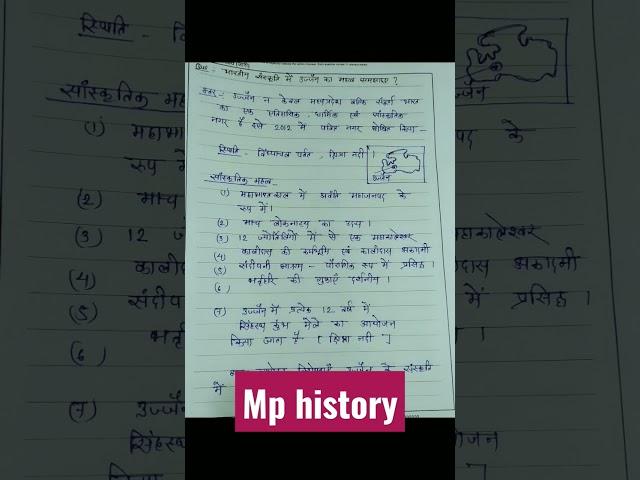 प्रश्न - भारतीय संस्कृति में उज्जैन का महत्व समझाइए ?
उत्तर - उज्जैन न केवल मध्यप्रदेश बल्कि संपूर्ण भारत
का एक ऐतिहासिक, धार्मिक एवं सांस्कृतिक
नगर है इसे 2012 में पवित्र नगर घोषित किया
स्थिति - विंध्याचल पर्वत, क्षिप्रा नदी ।
उज्जैन
सांस्कृतिक महत्व
(1) महाभारत काल में अवंति महाजनपद के
रूप में ।
(2) माच लोकनाट्य का उदय ।
(3) 12 ज्योतिर्लिंगों में से एक महाकालेश्वर
(4) कालीदास की कर्मभूमि एवं कालीदास अकादमी
(5) संदीपनी आश्रम - पौराणिक रूप में प्रसिद्ध ।
(6) भर्तृहरि की गुफाएँ दर्शनीय ।
(7) उज्जैन में प्रत्येक 12 वर्ष में
सिंहस्थ कुंभ मेले का आयोजन
किया जाता है [ क्षिप्रा नदी ]
उज्जैन के संस्कृति
में
Mp history